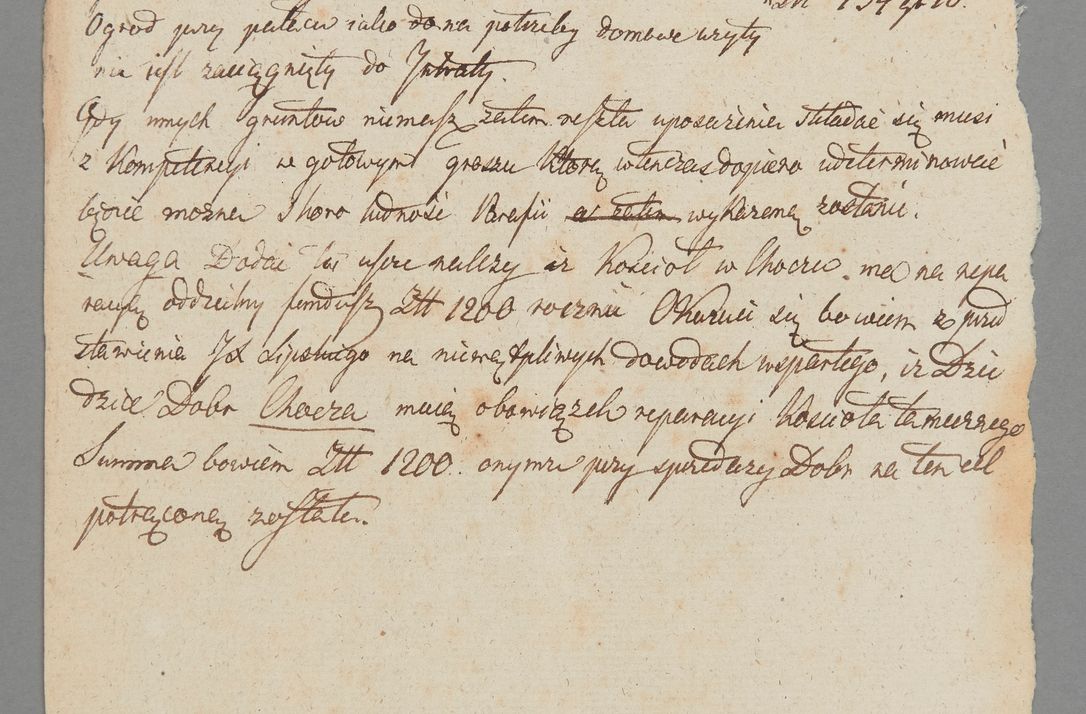 Ogrod przy pałacu iako do na potrzeby domowe użyty
nie iest zaciągnięty do Intraty.
Gdy innych gruntow niemasz zatem reszta uposażenia składać się musi
z Kompetencyi w gotowym groszu Którą wtenczas dopiero udeterminować
będzie można skoro ludność Parafii a zatem wykazaną zostanie.
Uwaga Dodać tu iuż należy iż Kościoł w Choczu ma na repa
racyą oddzielny fundusz Złt 1200 rocznie Okazuie się bowiem z przed
stawienia JX Lipskiego na niewątpliwych dowodach wspartego, iż Dzie
dzice Dobr Chocza maią obowiązek reparacyi Kościoła tamecznego
Summa bowiem Złt 1200. onymże przy sprzedaży Dobr na ten cel
potrąconą została.